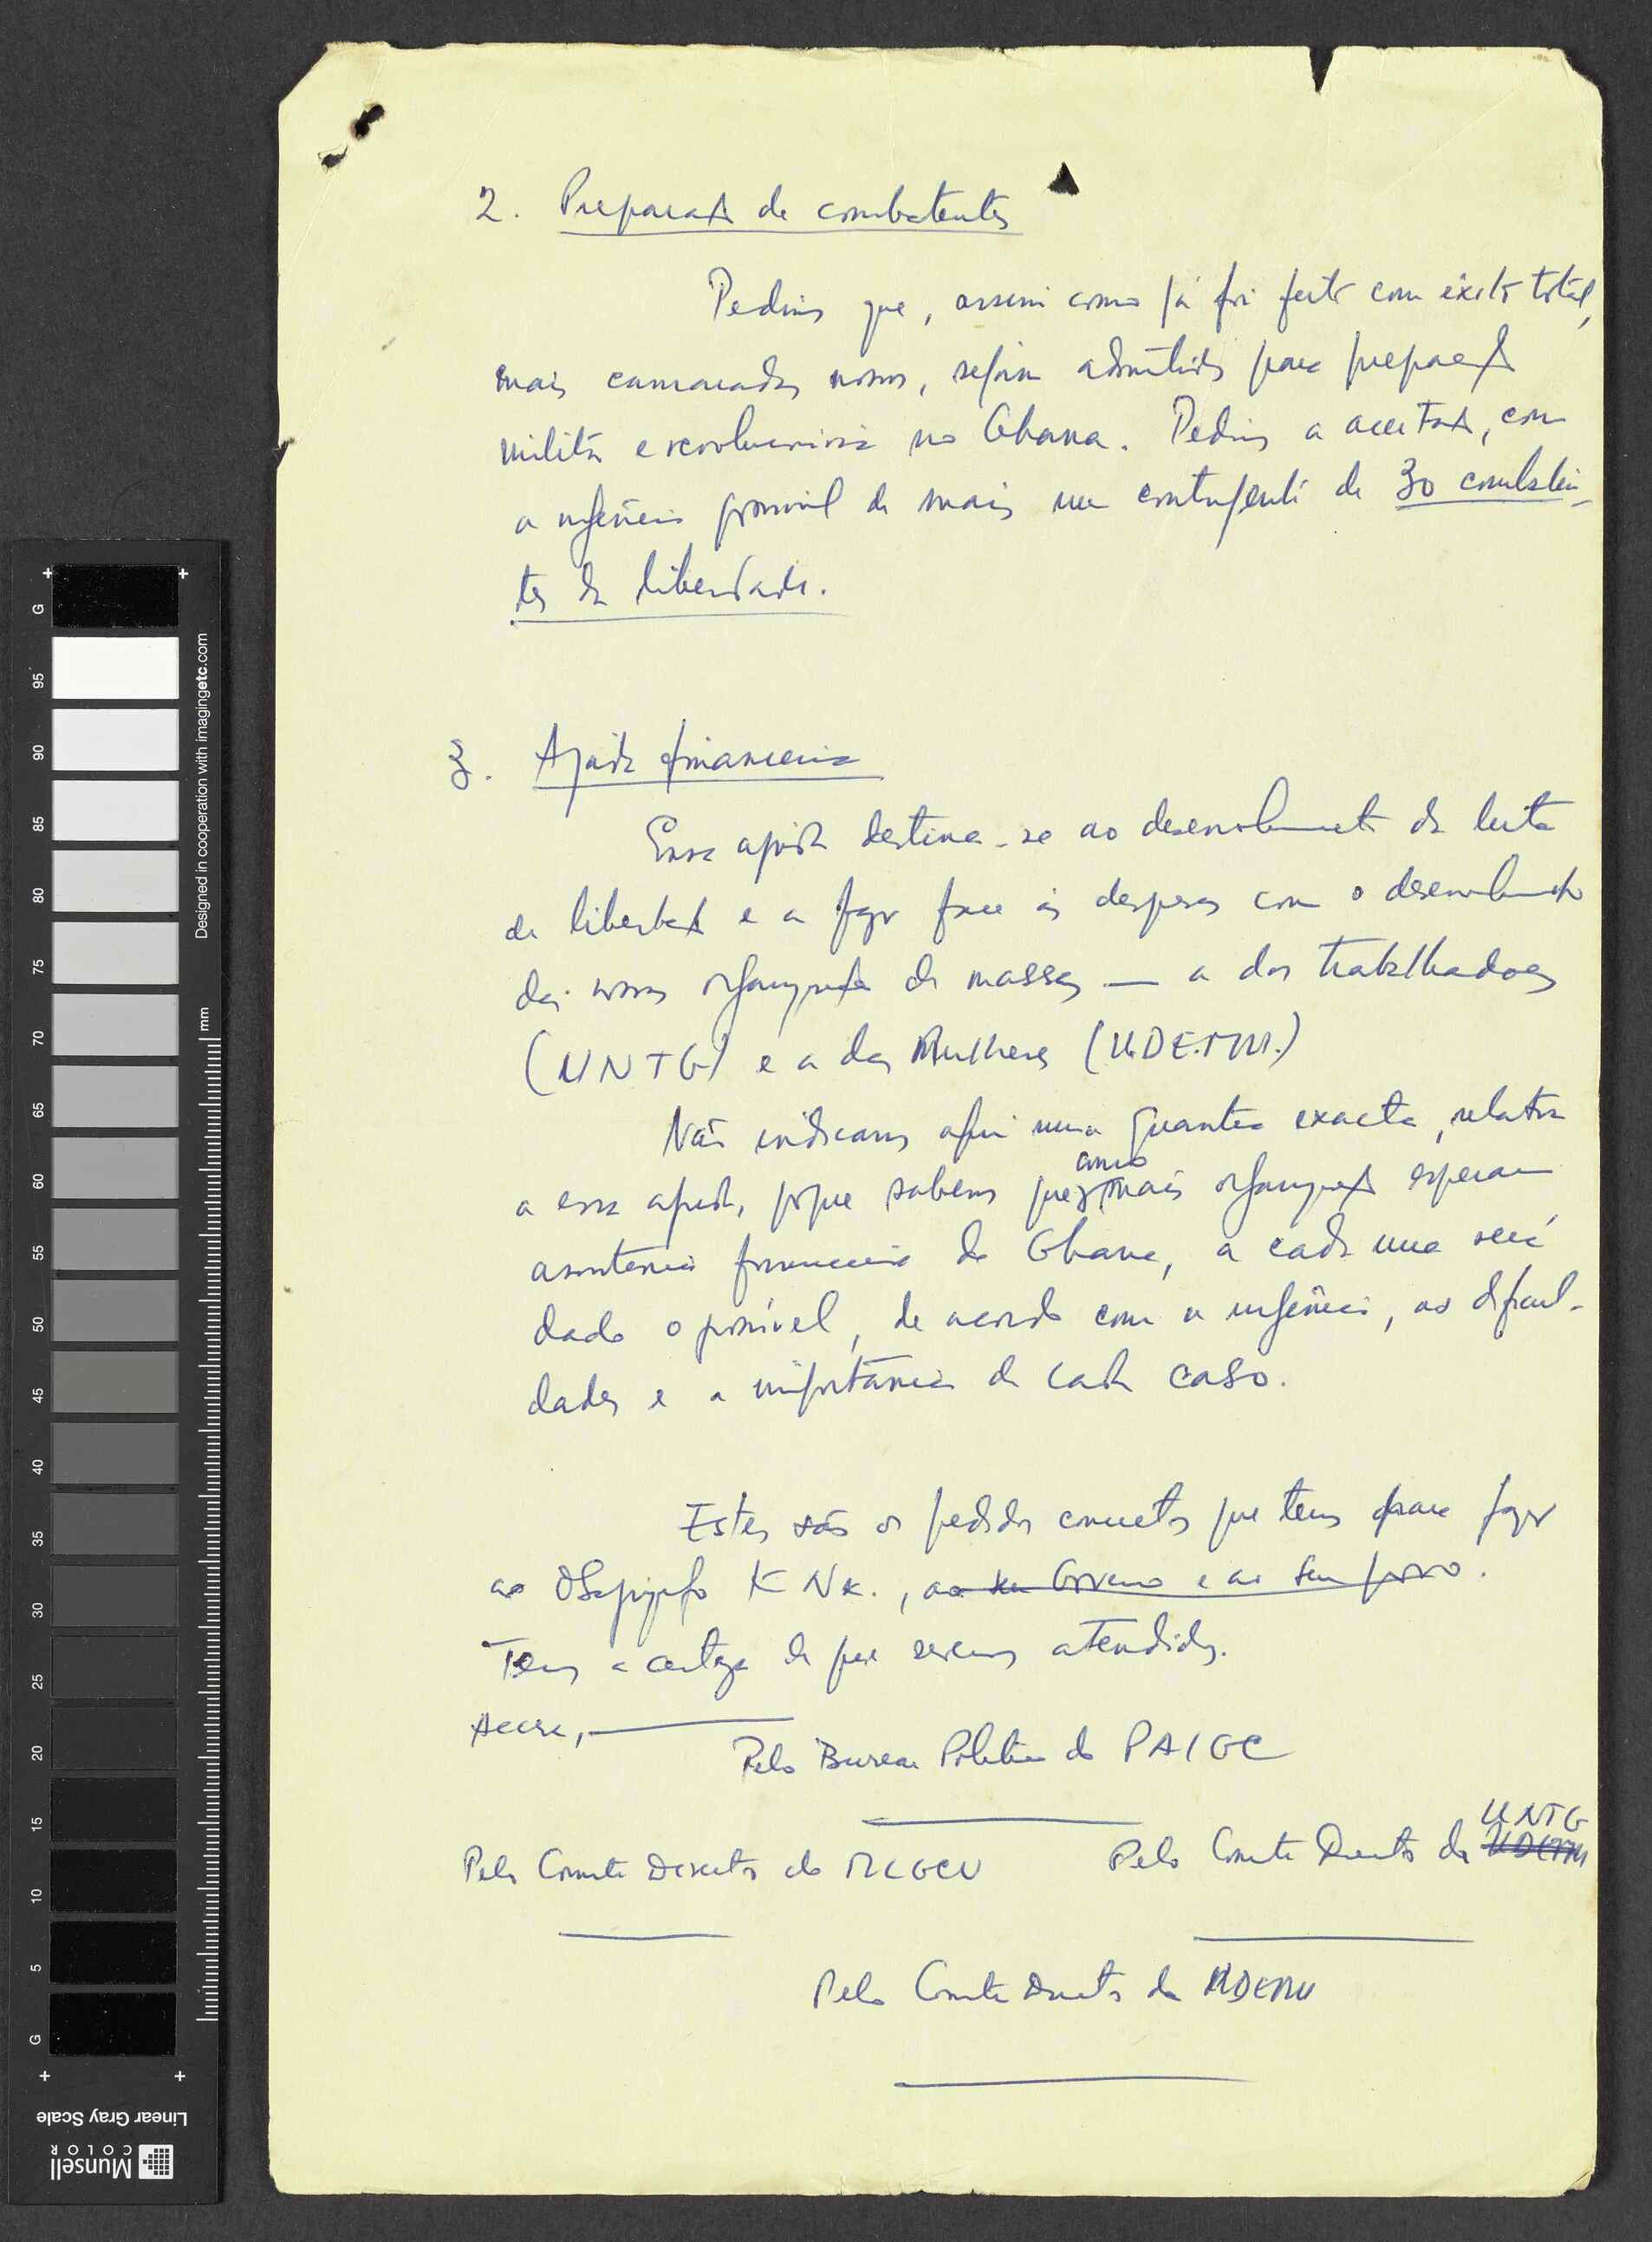 2. Preparação de combatentes
Pedimos que, assim como já foi feito com êxito total,
mais camaradas nossos, sejam admitidos para preparação
militar e revolucionária no Ghana. Pedimos a aceitação, com
a urgência possível de mais um contingente de 30 combaten-
tes da liberdade.
3. Ajuda financeira
Essa ajuda destina-se ao desenvolvimento da luta
de libertação e a fazer face às despesas com o desenvolvimento
das nossas organizações de massas — a dos trabalhadores
(UNTG) e a das Mulheres (UDEMU.)
Não indicamos aqui uma quantia exacta, relativa
a essa ajuda, porque sabemos que, como mais organizações esperam
assistência financeira do Ghana, a cada uma será
dado o possível, de acordo com a urgência, as dificul-
dades e a importância de cada caso.
Estes são os pedidos concretos que temos para fazer
ao Osagyefo K Nk., ao seu Governo e ao seu povo.
Temos a certeza de que seremos atendidos.
Accra,
Pelo Bureau Político do PAIGC
UNTG
Pelo Comité Director do MLGCV Pelo Comité Director da UDEMU
Pelo Comité Director da UDEMU
G
95
90
85
80
75
70
65
60
55
50
45
40
35
30
25
20
15
10
5
G
mm
Designed in cooperation with imagingetc.com
Linear Gray Scale
Munsell
COLOR